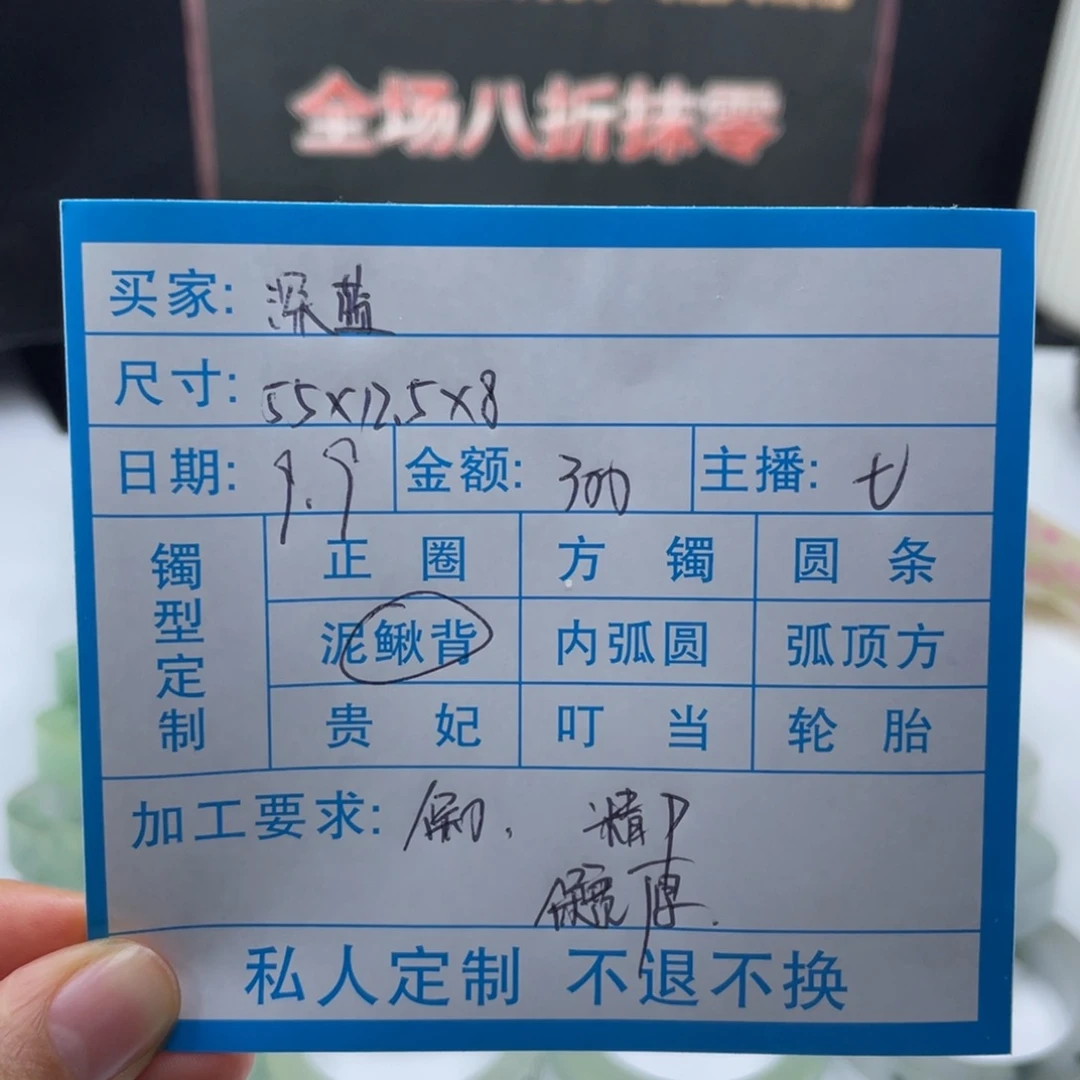 全场八折抹零
买家: 深蓝
尺寸: 55×12.5×8
日期: 9.9 金额: 300 主播: 七
镯型定制
正圈 方镯 圆条
泥鳅背 内弧圆 弧顶方
贵妃 叮当 轮胎
加工要求: 精P
保宽厚.
私人定制 不退不换